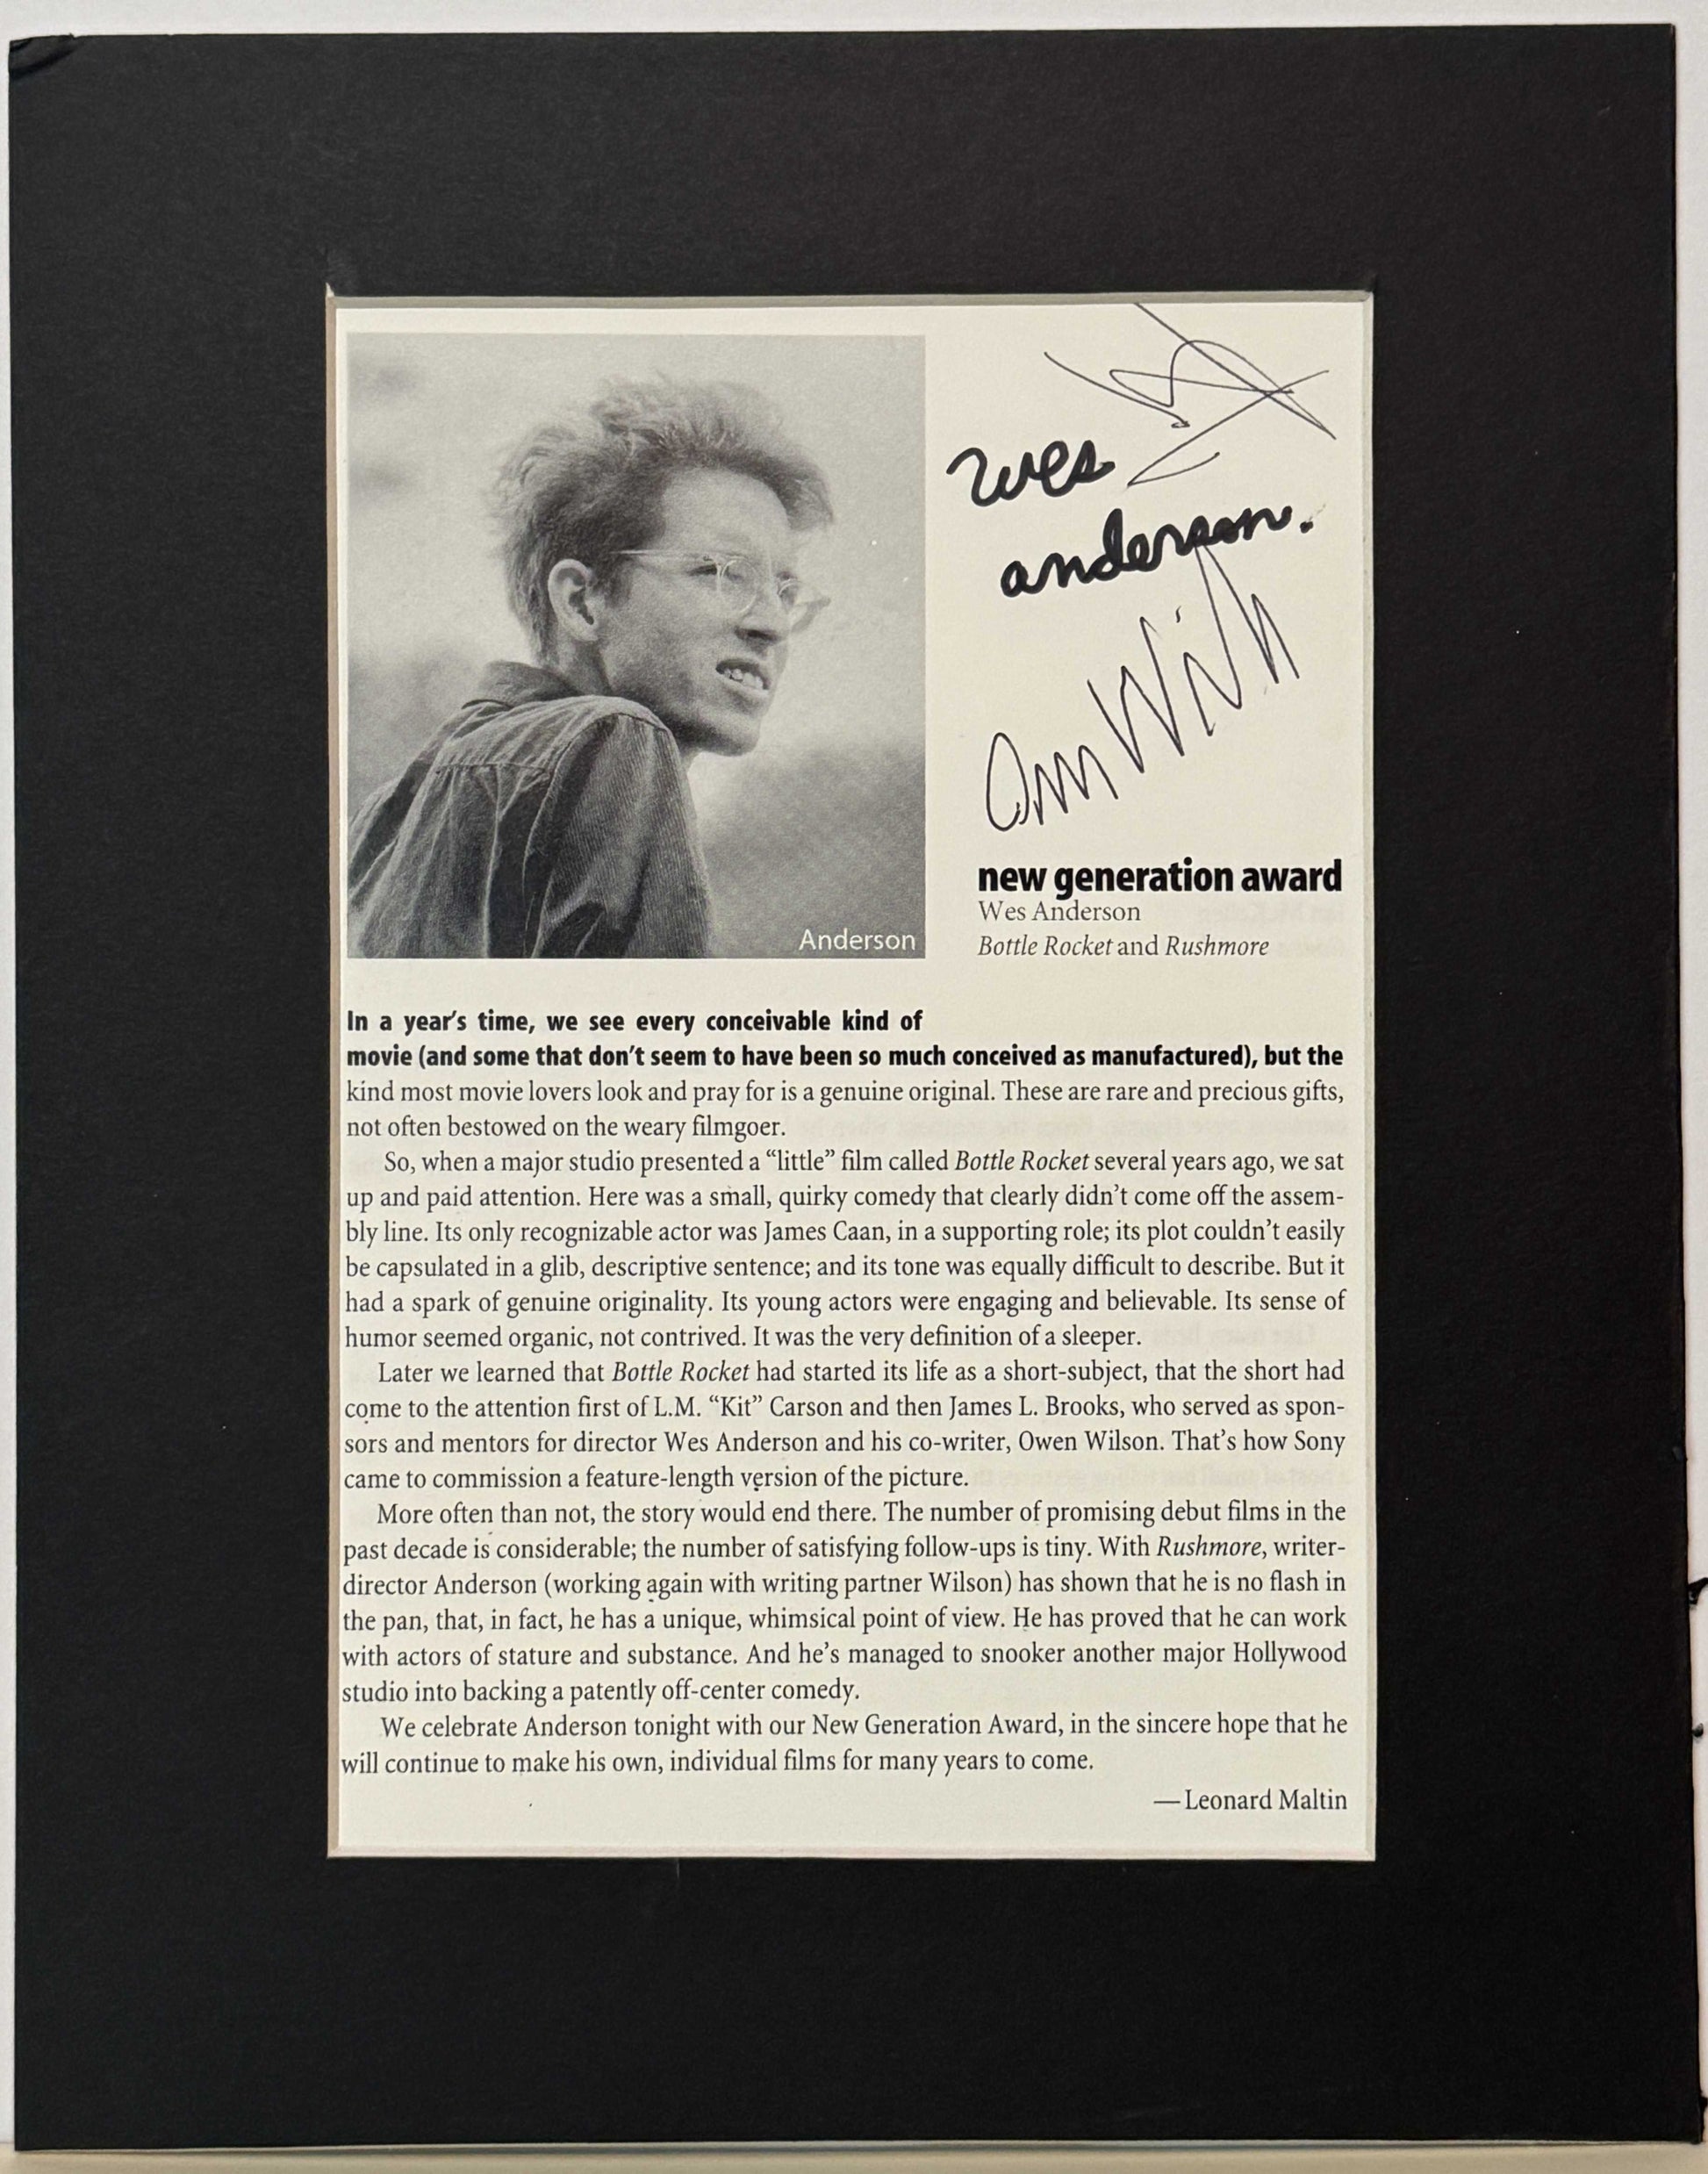 wes
anderson.
Anderson
new generation award
Wes Anderson
Bottle Rocket and Rushmore
In a year's time, we see every conceivable kind of
movie (and some that don't seem to have been so much conceived as manufactured), but the
kind most movie lovers look and pray for is a genuine original. These are rare and precious gifts,
not often bestowed on the weary filmgoer.
So, when a major studio presented a “little” film called Bottle Rocket several years ago, we sat
up and paid attention. Here was a small, quirky comedy that clearly didn't come off the assem-
bly line. Its only recognizable actor was James Caan, in a supporting role; its plot couldn't easily
be capsulated in a glib, descriptive sentence; and its tone was equally difficult to describe. But it
had a spark of genuine originality. Its young actors were engaging and believable. Its sense of
humor seemed organic, not contrived. It was the very definition of a sleeper.
Later we learned that Bottle Rocket had started its life as a short-subject, that the short had
come to the attention first of L.M. “Kit” Carson and then James L. Brooks, who served as spon-
sors and mentors for director Wes Anderson and his co-writer, Owen Wilson. That's how Sony
came to commission a feature-length version of the picture.
More often than not, the story would end there. The number of promising debut films in the
past decade is considerable; the number of satisfying follow-ups is tiny. With Rushmore, writer-
director Anderson (working again with writing partner Wilson) has shown that he is no flash in
the pan, that, in fact, he has a unique, whimsical point of view. He has proved that he can work
with actors of stature and substance. And he's managed to snooker another major Hollywood
studio into backing a patently off-center comedy.
We celebrate Anderson tonight with our New Generation Award, in the sincere hope that he
will continue to make his own, individual films for many years to come.
—Leonard Maltin